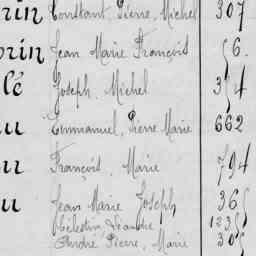 rin Constant, Pierre, Michel 307
orin Jean Marie François 6.
lé Joseph, Michel 34
u Emmanuel, Pierre Marie 662
u François, Marie 794
u Jean Marie Joseph 36
Célestin, Léandre 123
André Pierre, Marie 30